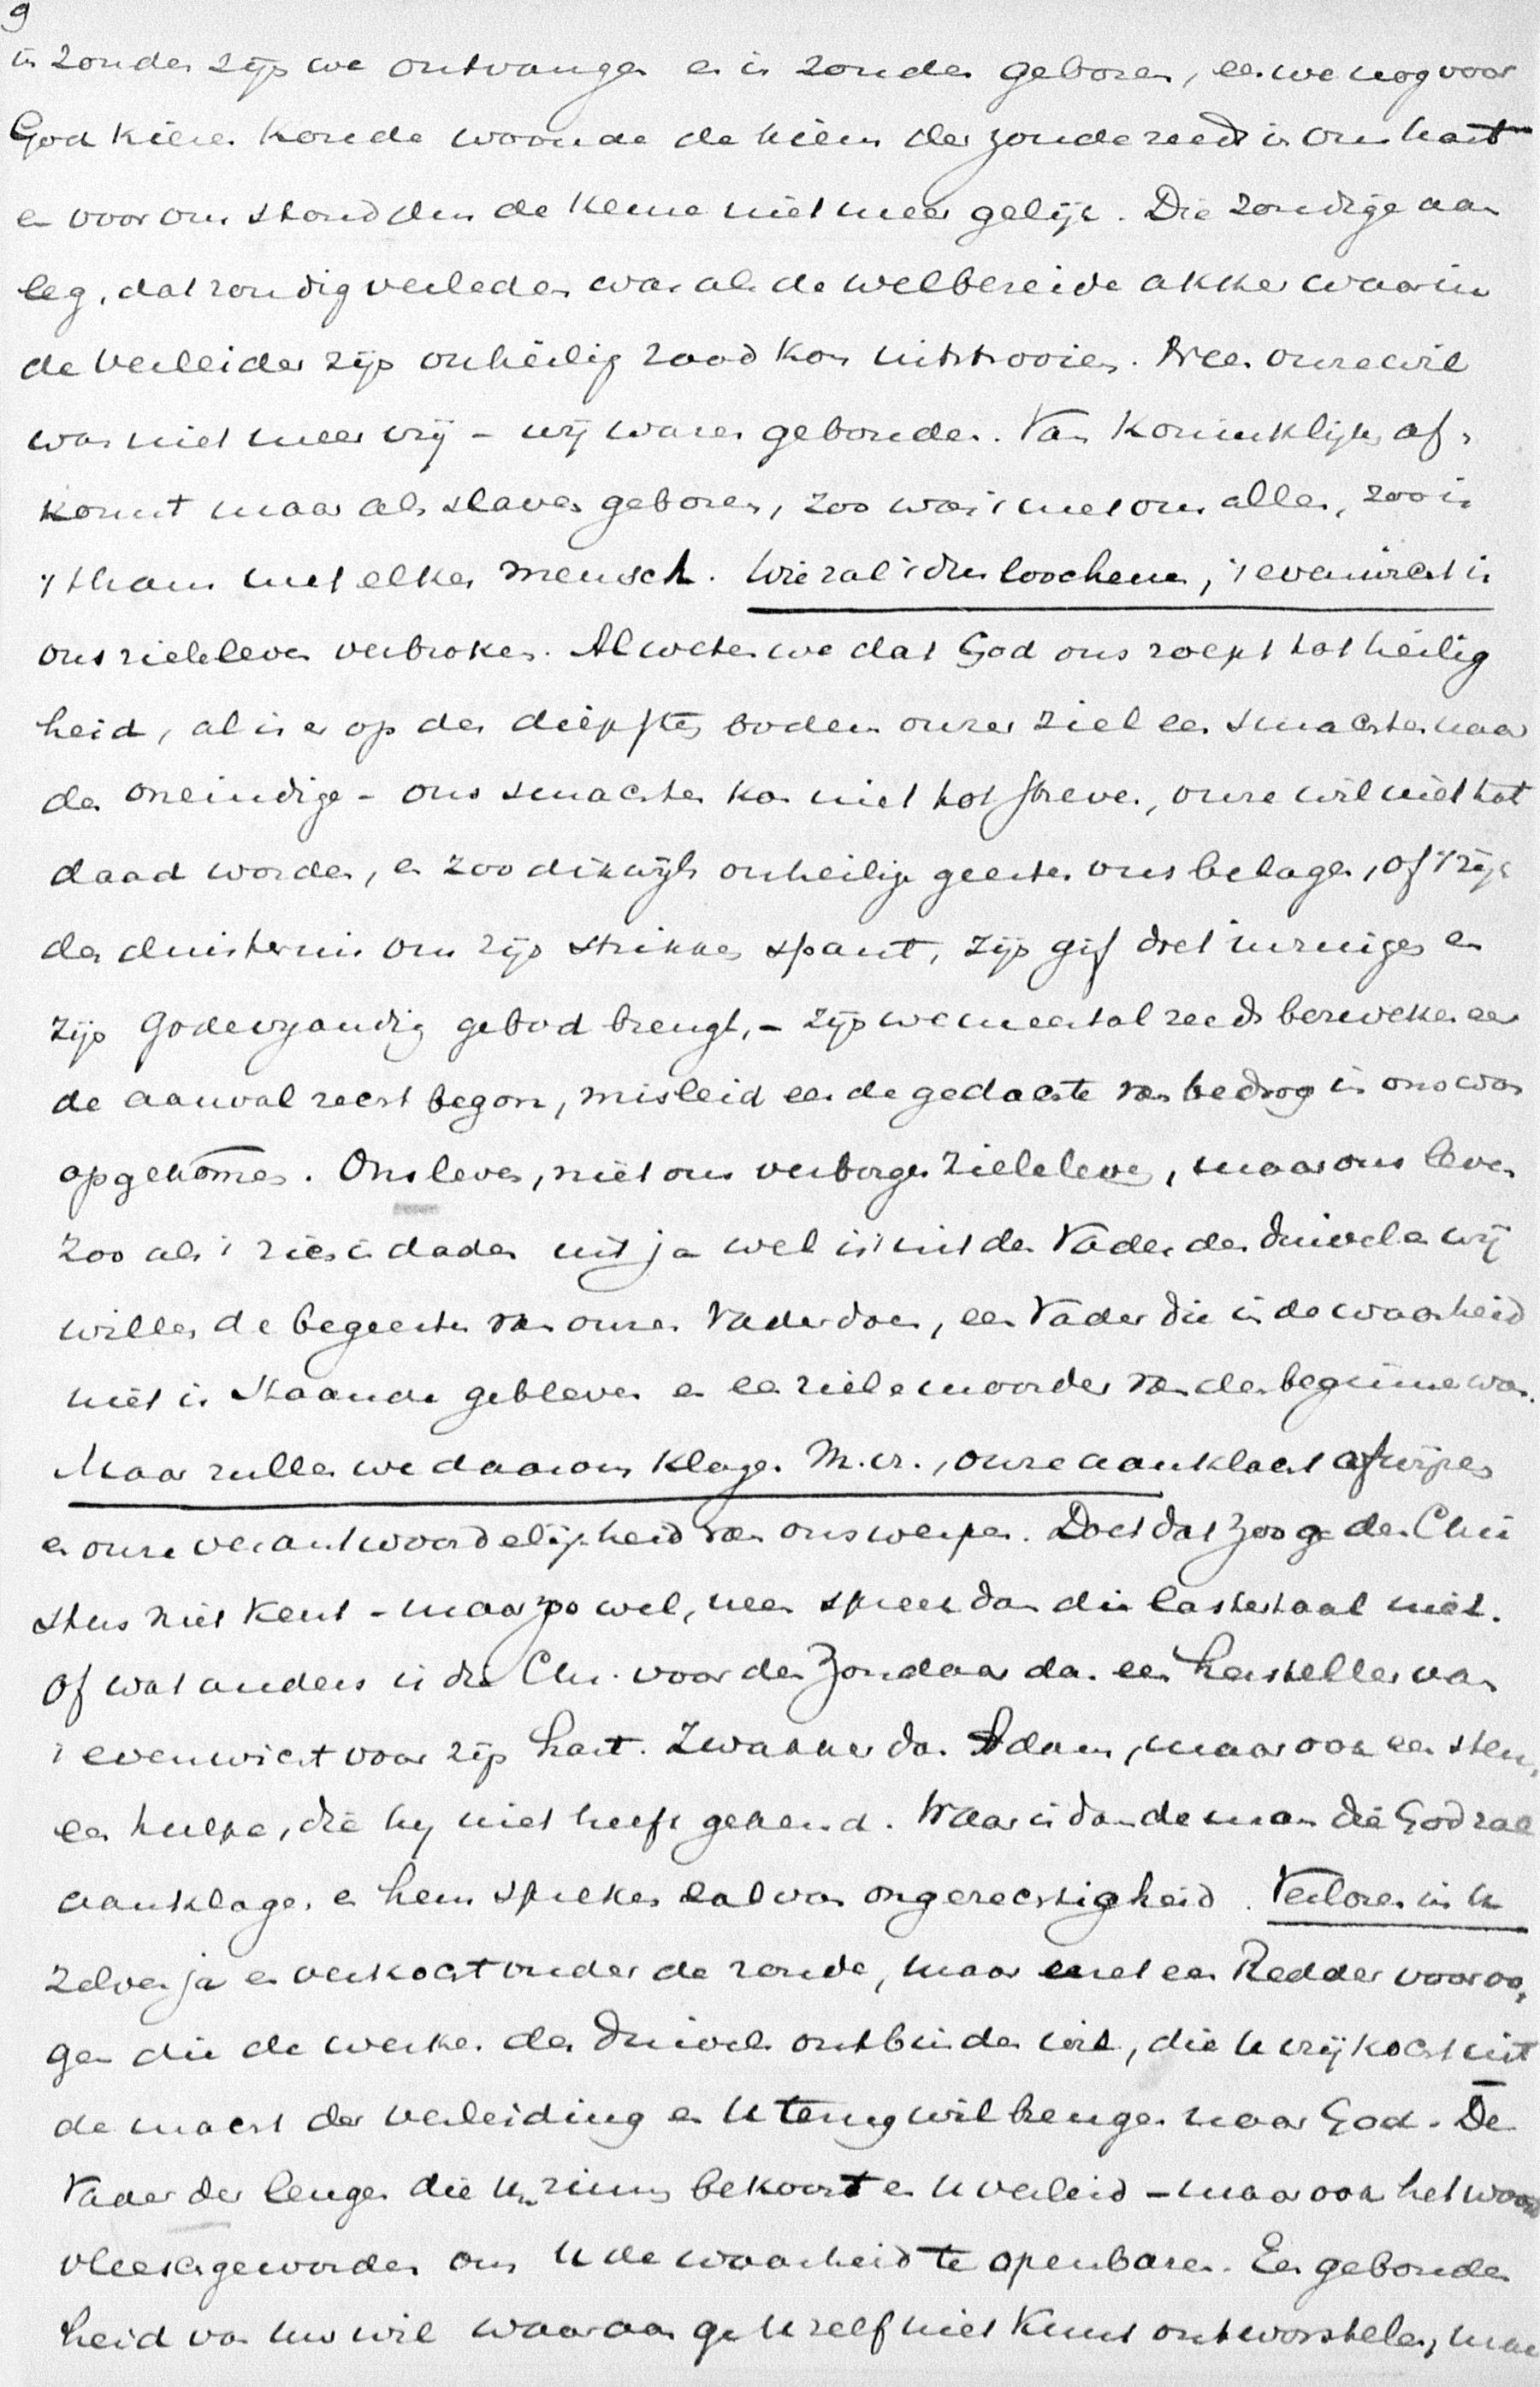 9
in zonden zijn we ontvangen en in zonden geboren, eer we nog voor
God kiezen konden woonde de kiem der zonde reeds in ons hart
en voor ons stond dus de keuze niet meer gelijk. Die zondige aan
leg, dat zondig verleden was als de welbereide akker waarin
de verleider zijn onheilig zaad kon uitstrooien. Neen onze wil
was niet meer vrij - wij waren gebonden. Van Koninklijke af-
komst maar als slaven geboren, zoo was 't met ons allen, zoo is
't thans met elken mensch. Wie zal 't dus loochenen, 't evenwicht is
ons zieleleven verbroken. Al weten we dat God ons roept tot heilig
heid, al is er op den diepsten bodem onzer ziel een smachten naar
den oneindige - ons smachten kan niet tot streven, onze wil niet tot
daad worden, en zoo dikwijls onheilige geesten ons belagen, of 't rijk
der duisternis ons zijn strikken spant, zijn gif doet inzuigen en
zijn Godevyandig gebod brengt, - zijn we meestal reeds bezweken eer
de aanval eerst begon, misleid eer de gedachte van bedrog in ons was
opgekomen. Ons leven, niet ons verborgen zieleleven, maar ons leven
zoo als 't zich in daden uit ja wel is 't uit den Vader den duivel en wij
willen de begeerten van onzen Vader doen, een Vader die in de waarheid
niet is staande gebleven en een zielemoorder van den beginne was.
Maar zullen we daarom klagen M.vr., onze aanklacht afwijzen
en onze verantwoordelijkheid van ons werpen. Doet dat zoo ge den Chri
stus niet kent - maar zoo wel, neen spreek dan die lastertaal niet.
Of wat anders is die Chr. voor den Zondaar dan een hersteller van
't evenwicht voor zijn hart. Zwakker dan Adam, maar ook een steun,
een hulpe, die hy niet heeft gekend. Waar is dan de man die God zal
aanklagen en hem spreken zal van ongerechtigheid. Verloren in u
zelven ja en verkocht onder de zonde, maar met een Redder voor oo,
gen die de werken des duivels ontbinden wil, die u vrijkocht uit
de macht der verleiding en u terug wil brengen naar God. De
Vader der leugen die uw zinnen bekoort en u verleid - maar ook het woord
vleeschgeworden om u de waarheid te openbaren. Een gebonden
heid van uw wil waaraan ge u zelf niet kunt ontworstelen, maar